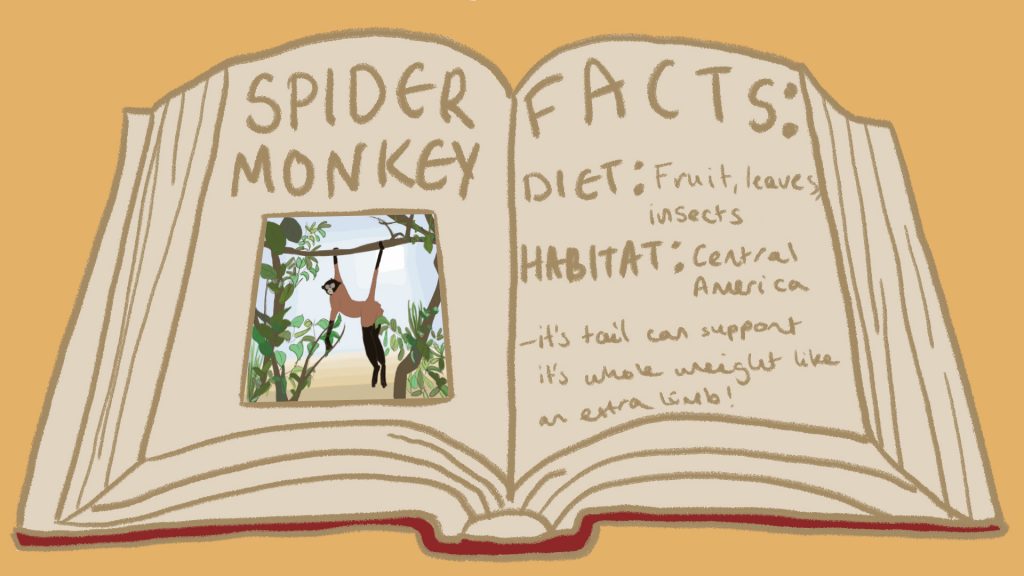 SPIDER
MONKEY
FACTS:
DIET: Fruit, leaves,
insects
HABITAT: Central
America
-it's tail can support
it's whole weight like
an extra limb!